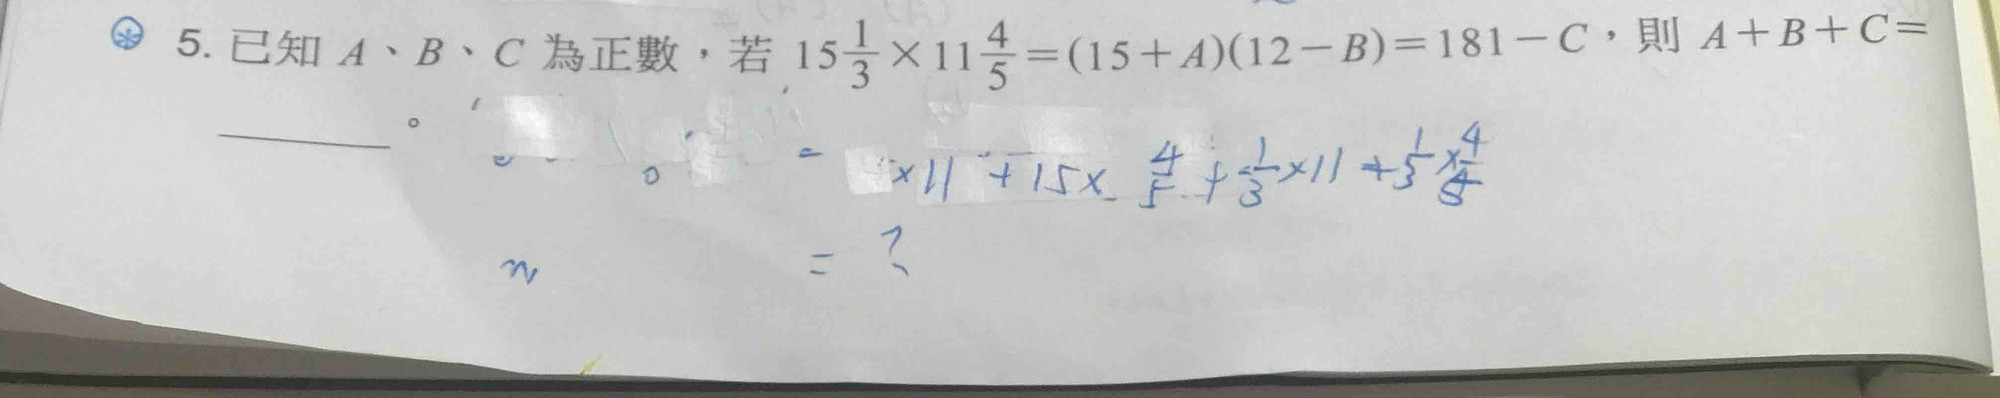 5. 已知 A、B、C 為正數，若 15 1/3 × 11 4/5 = (15＋A)(12－B)＝181－C，則 A＋B＋C＝
______。
= ×11 + 15× 4/5 + 1/3 ×11 + 1/3 × 4/5
= ?